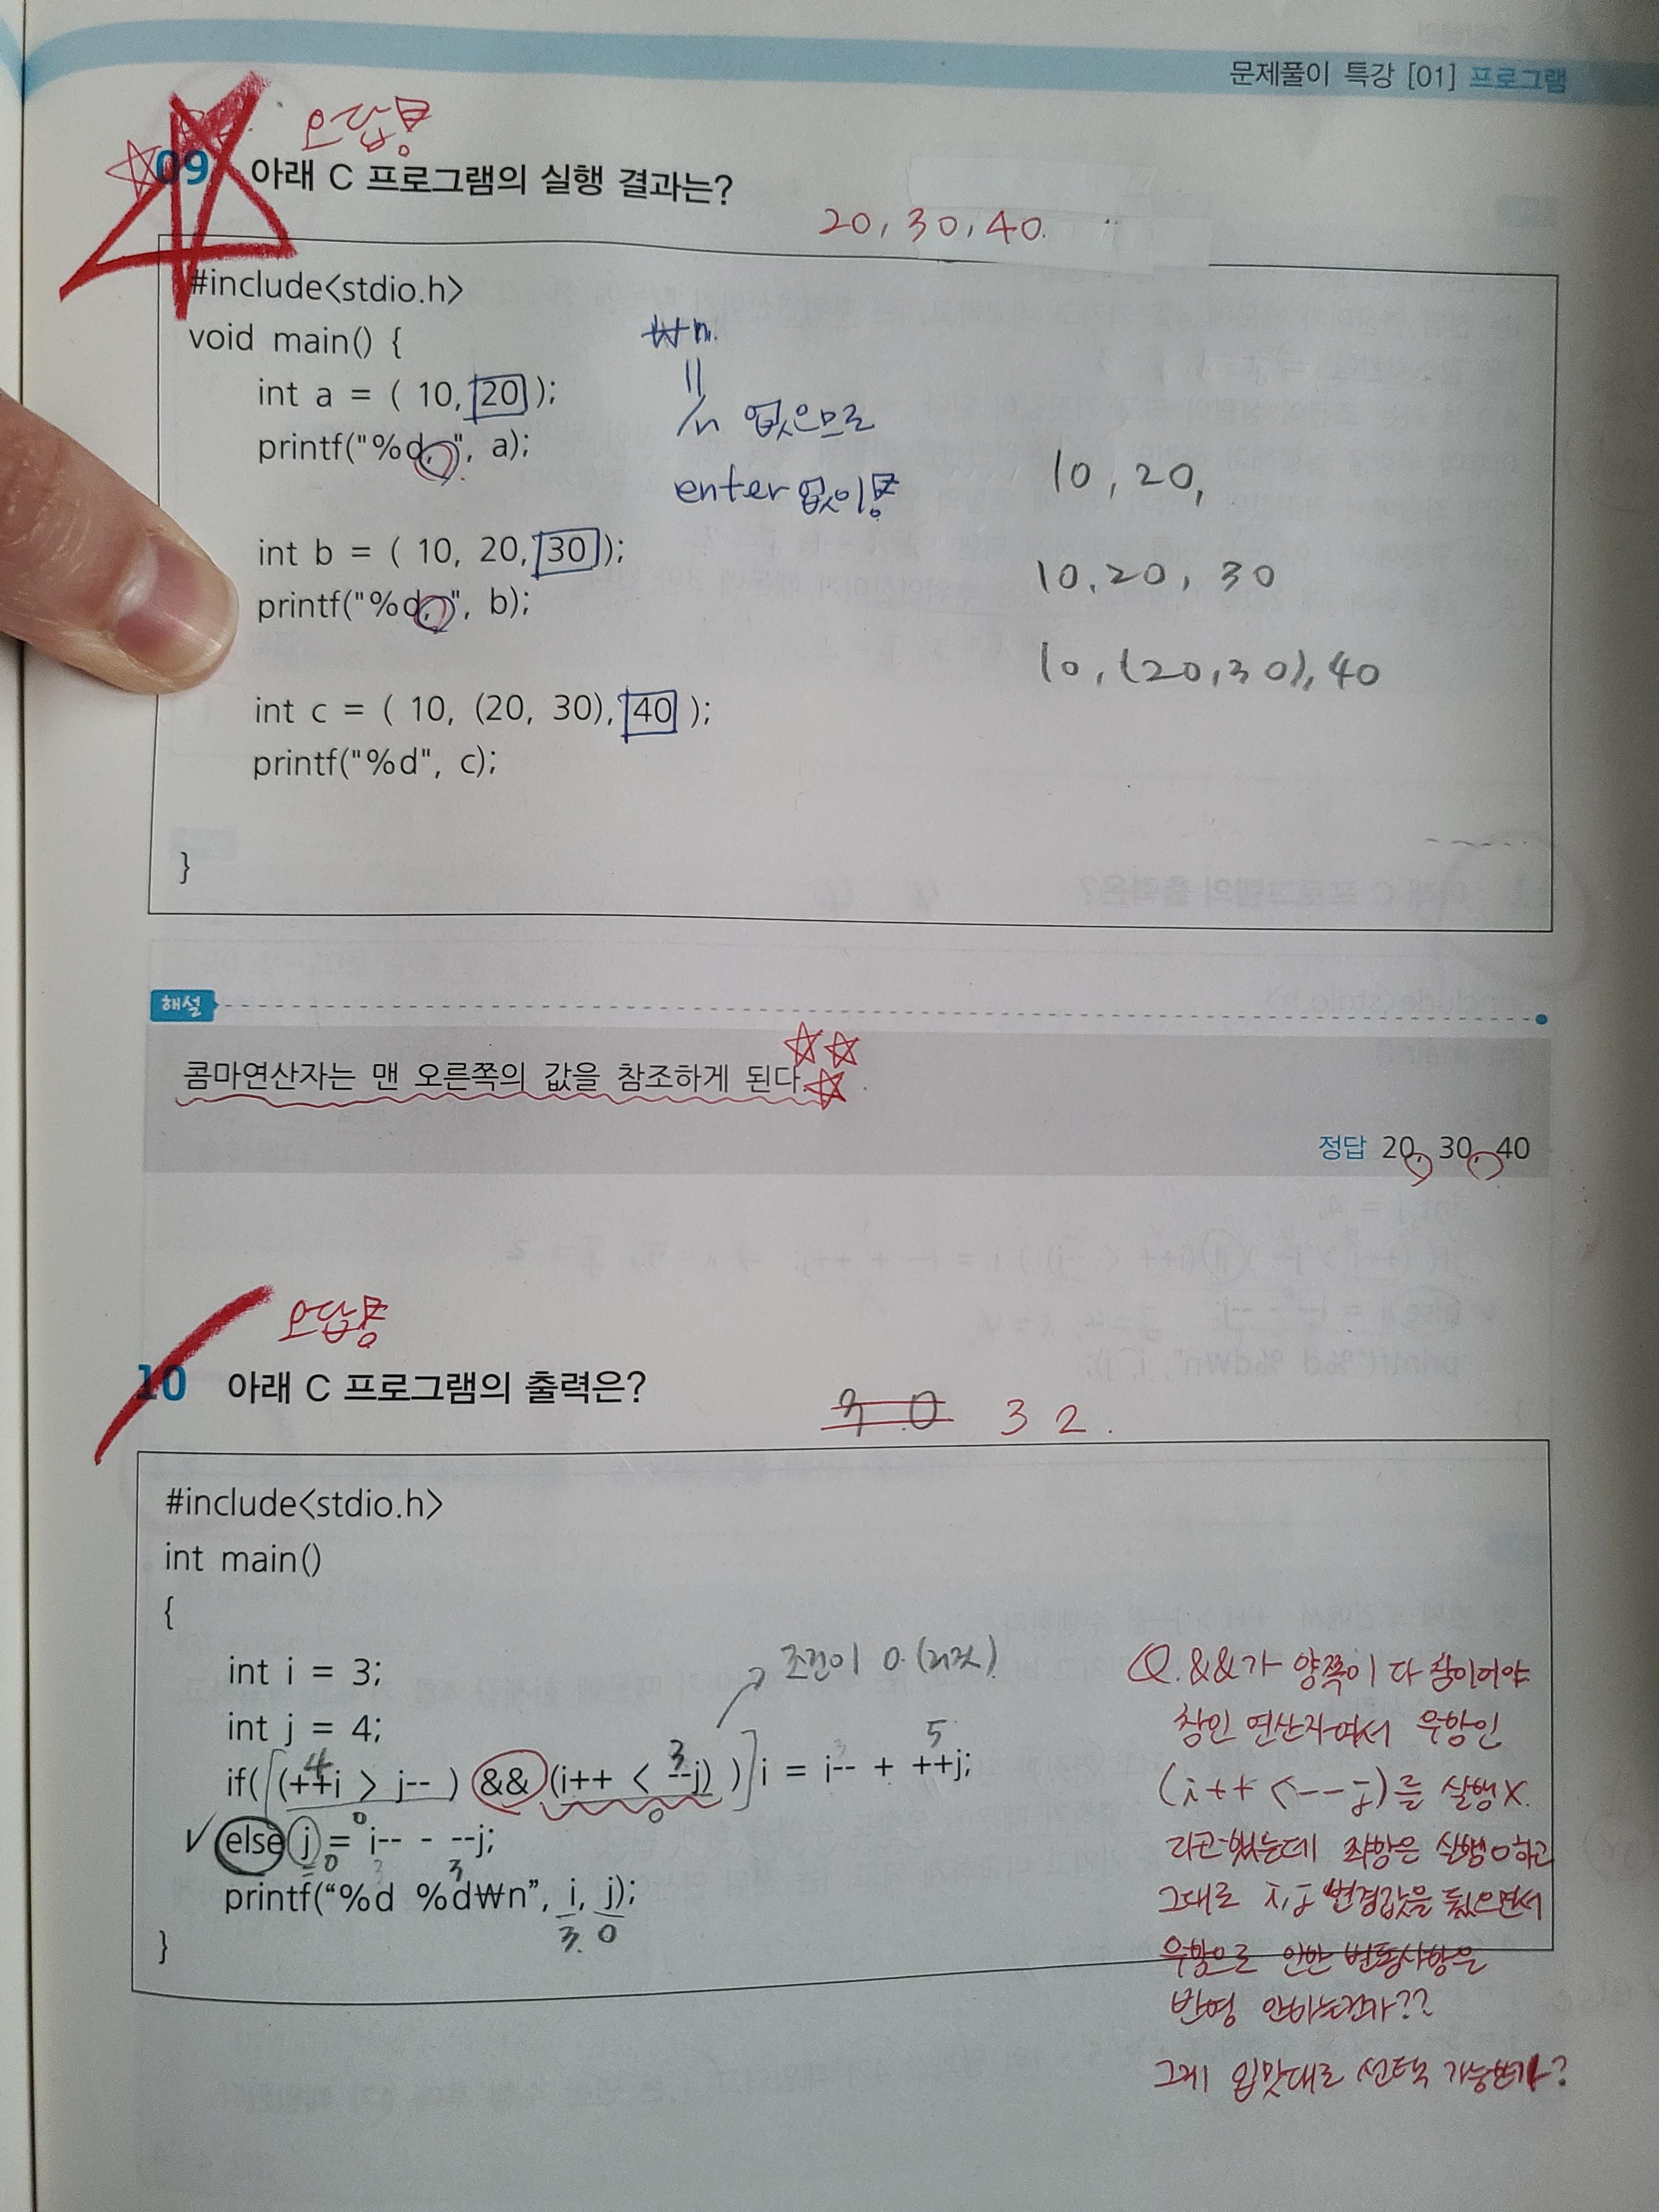 문제풀이 특강 [01] 프로그램
오답!
09 아래 C 프로그램의 실행 결과는?
20, 30, 40.
#include<stdio.h>
void main() {
int a = ( 10, 20 );
printf("%d, ", a);
int b = ( 10, 20, 30 );
printf("%d, ", b);
int c = ( 10, (20, 30), 40 );
printf("%d", c);
}
₩n.
||
/n 없으므로
enter 없이!
10, 20,
10, 20, 30
10, (20, 30), 40
해설
콤마연산자는 맨 오른쪽의 값을 참조하게 된다.
정답 20, 30, 40
오답!
10 아래 C 프로그램의 출력은?
3 0 3 2.
#include<stdio.h>
int main()
{
int i = 3;
int j = 4;
if( (++i > j-- ) && (i++ < --j) ) i = i-- + ++j;
else j = i-- - --j;
printf("%d %d₩n", i, j);
}
조건이 0 (거짓)
4
3
5
0
0
=0
3
3
3. 0
Q. &&가 양쪽이 다 참이어야
참인 연산자여서 우항인
(i++ <--j)를 실행 X.
라고 했는데 좌항은 실행 O하고
그대로 i, j 변경값을 뒀으면서
우항으로 인한 변동사항은
반영 안하는건가??
그게 입맛대로 선택 가능한가?